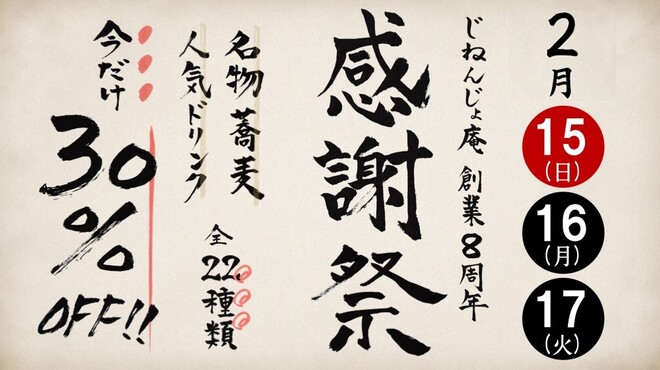 2月
15(日)
16(月)
17(火)
じねんじょ庵 創業8周年
感謝祭
名物蕎麦
人気ドリンク
全22種類
今だけ
30%
OFF!!